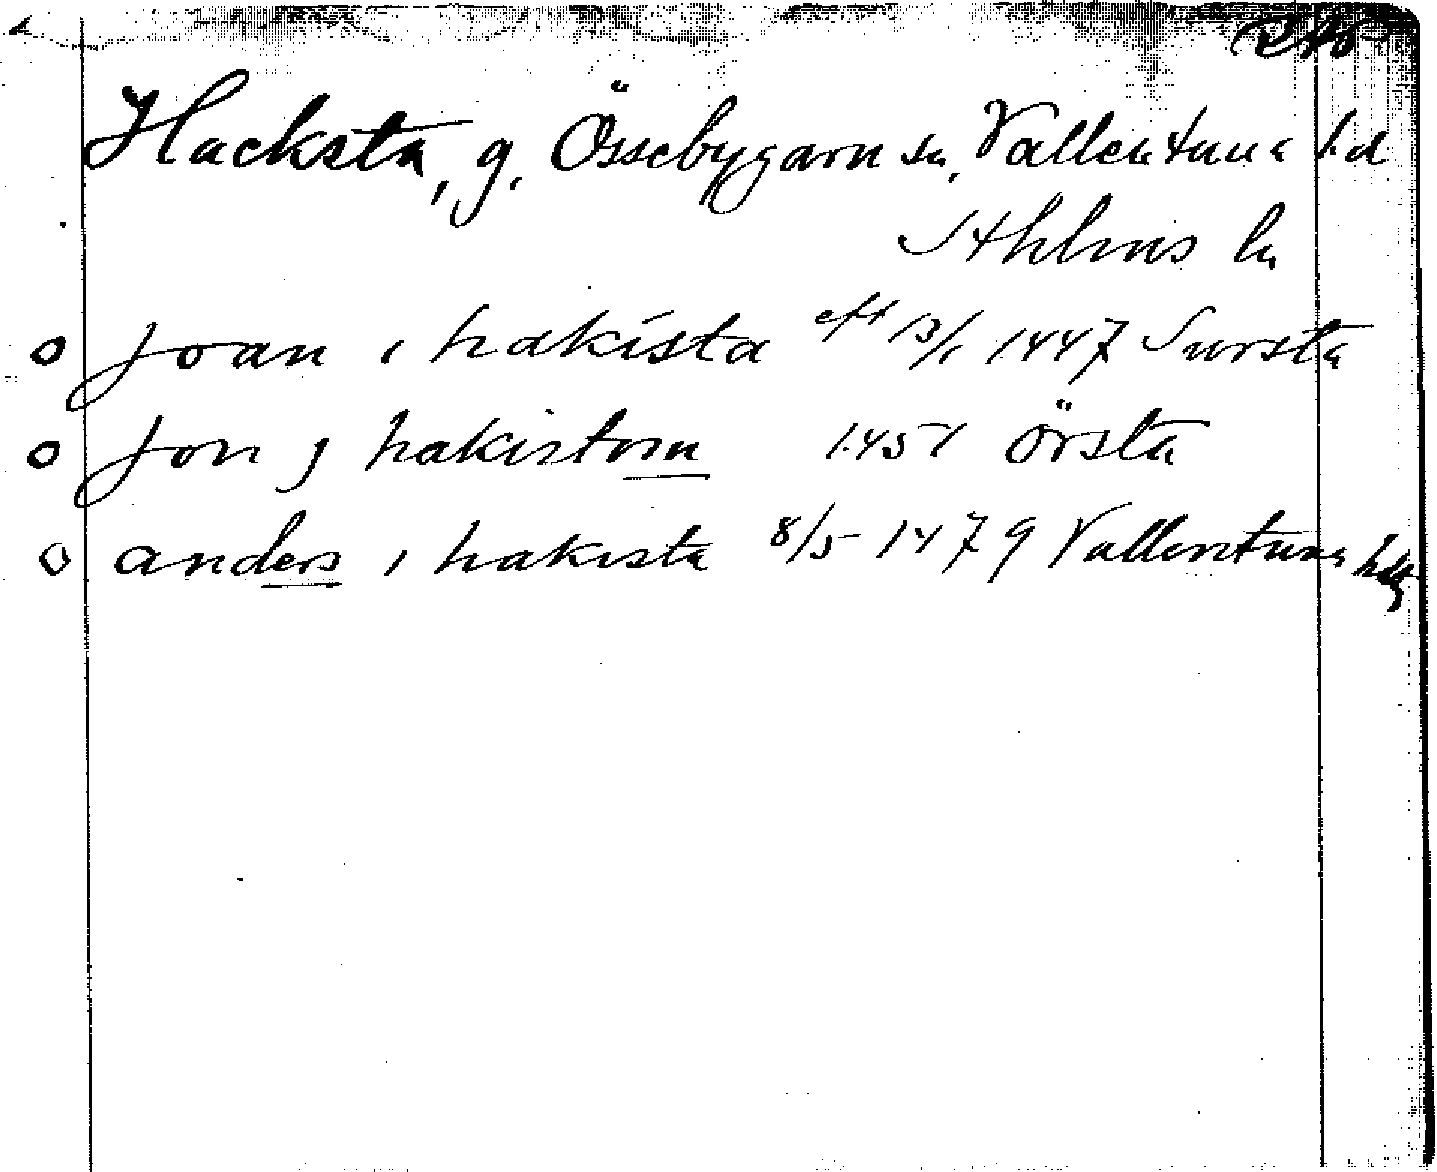 Hacksta, g, Össebygarn sn, Vallentuna hd
Sthlms ln
o joan i hakista eft 13/1 1447 Sursta
o jon j hakistom 1451 Örsta
o anders i hakista 8/5 1479 Vallentuna hdg